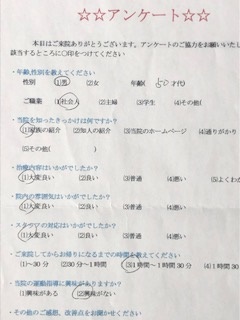 ☆☆アンケート☆☆
本日はご来院ありがとうございます。アンケートのご協力をお願いいたし
該当するところに〇印を付けてください
・年齢,性別を教えてください
性別 (1)男 (2)女 年齢( 50 才代)
ご職業 (1)社会人 (2)主婦 (3)学生 (4)その他(
・当院を知ったきっかけは何ですか?
(1)家族の紹介 (2)知人の紹介 (3)当院のホームページ (4)通りがかり
(5)その他( )
・治療内容はいかがでしたか?
(1)大変良い (2)良い (3)普通 (4)悪い (5)よくわか
・院内の雰囲気はいかがでしたか?
(1)大変良い (2)良い (3)普通 (4)悪い
・スタッフの対応はいかがでしたか?
(1)大変良い (2)良い (3)普通 (4)悪い
・ご来院してからお帰りになるまでの時間を教えてください
(1)~30分 (2)30分~1時間 (3)1時間~1時間30分 (4)1時
・当院の運動指導に興味がありますか?
(1)興味がある (2)興味がない
・その他のご感想、改善点をお聞かせください